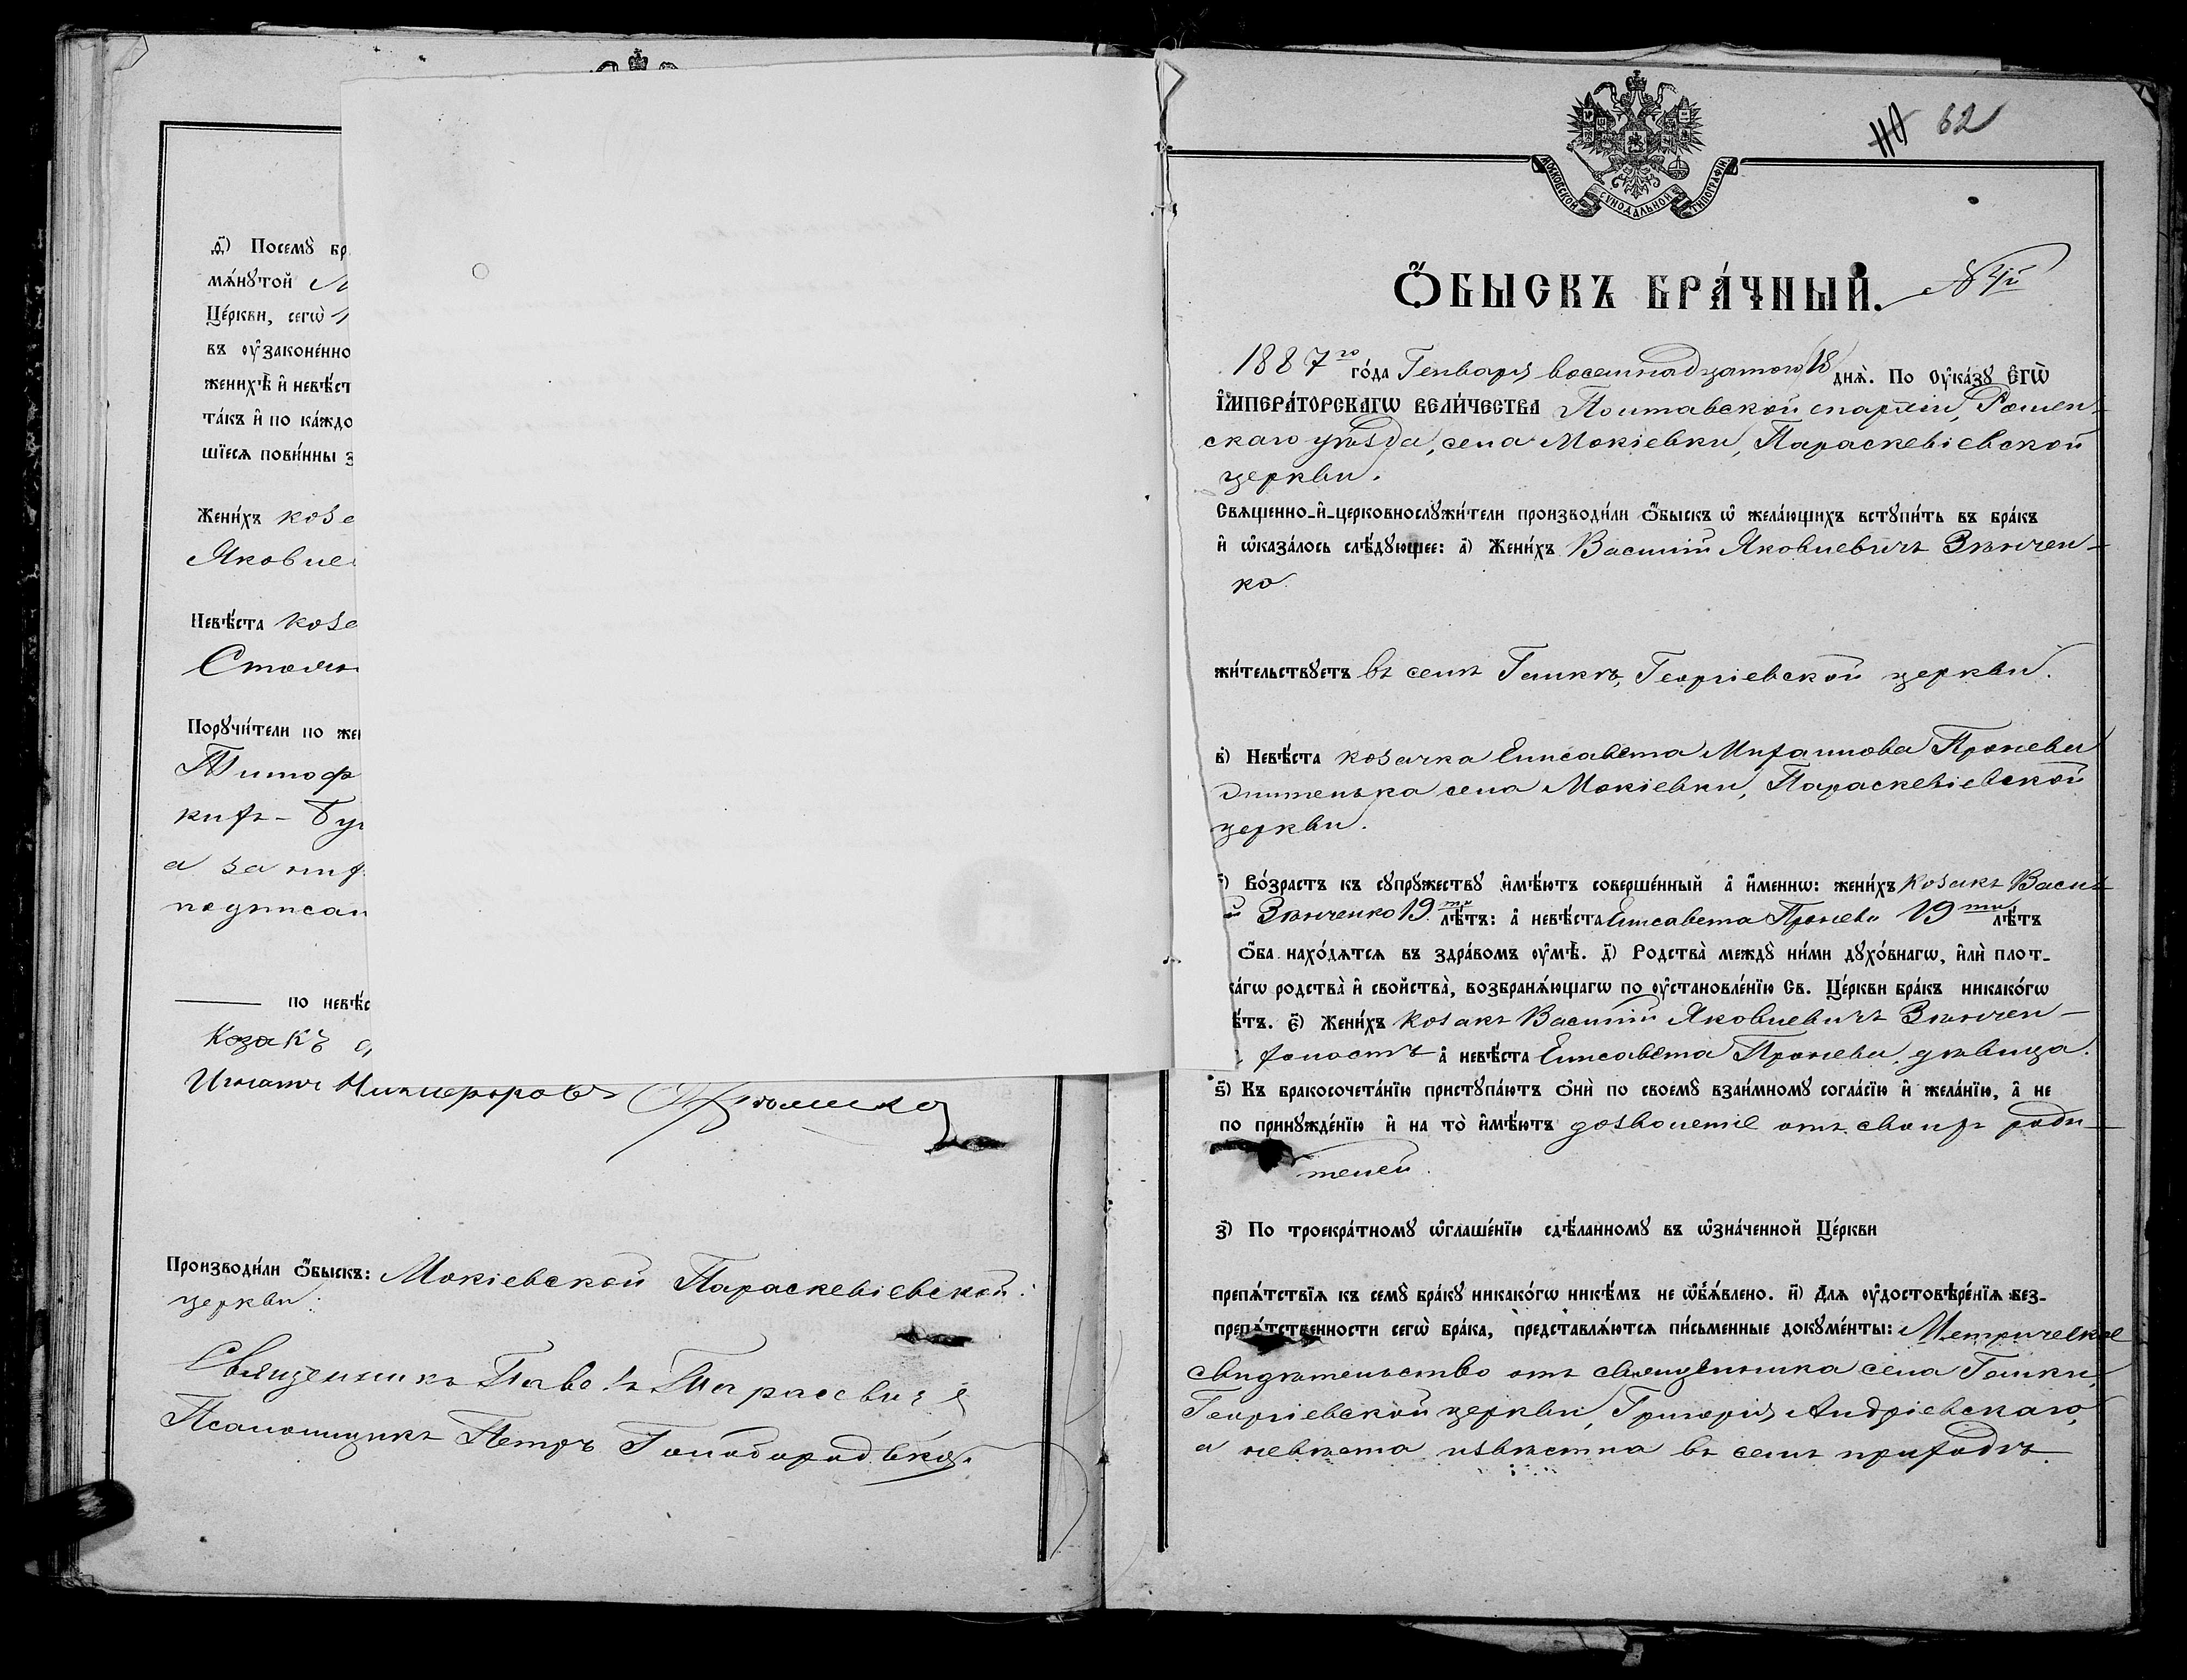 д҃) Посемꙋ̀ бр
мѧ́нꙋтой
Це́ркви, сегѡ̀
въ ᲂу҆законе́нно
женихѣ̀ и҆ невѣ́ст
та́къ и҆ по ка́ждо
шїесѧ пови́нны з
Жени́хъ коза
Яковле
Невѣ́ста коза
Порꙋчи́тели по же
Тимоф
кихъ - Бу
а за них
подписал
по невѣ́с
Козакъ
Игнатъ Никифоровъ
Производи́ли ѻ҆́быскъ: Мокіевской Параскевіевской
церкви:
Священникъ Павелъ Тарасевичъ
Псаломщикъ Петръ Голобородько.
62
МОСКОВСКОЙ СѴНОДАЛЬНОЙ ТИПОГРАФІИ
Ѻ҆́БЫСКЪ БРА́ЧНЫЙ. № 4й
1887го го́да Генваря восемнадцатого 18 днѧ̀. По Оу҆ка́зꙋ Є҆ГѠ̀
И҆МПЕРА́ТОРСКАГѠ ВЕЛИ́ЧЕСТВА Полтавской епархіи, Ромен-
скаго уѣзда, села Мокіевки, Параскевіевской
церкви.
Свѧще́нно-и҆-церковнослꙋжи́тели производи́ли ѻ҆́быскъ ѡ҆ жела́ющихъ встꙋпи́ть въ бра́къ
и҆ ѡ҆каза́лось слѣ́дꙋющее: а҃) Жени́хъ Василій Яковлевичъ Зѣнчен-
ко
жи́тельствꙋетъ въ селѣ Галкѣ, Георгіевской церкви.
в҃) Невѣ́ста козачка Елисавета Михаилова Пронева
жителька села Мокіевки, Параскевіевской
церкви.
) Во́зрастъ къ сꙋпрꙋ́жествꙋ и҆мѣ́ютъ соверше́нный а҆ и҆́менно: жени́хъ козакъ Васил
й Зѣнченко 19ти лѣ́тъ: а҆ невѣ́ста Елисавета Пронева 19ти лѣ́тъ
ѻ҆́ба нахо́дѧтсѧ въ здра́вомъ ᲂу҆мѣ̀. д҃) Родства̀ междꙋ̀ ни́ми дꙋхо́внагѡ, и҆лѝ плот-
ска́гѡ родства̀ и҆ сво́йства̀, возбранѧ́ющагѡ по ᲂу҆становле́нїю Св. Це́ркви бра́къ никако́гѡ
ѣ́тъ. є҃) Жени́хъ козакъ Василій Яковлевичъ Зѣнчен-
холостъ а҆ невѣ́ста Елисавета Пронева дѣвица.
ѕ҃) Къ бракосочета́нїю пристꙋпа́ютъ ѻ҆нѝ по своемꙋ̀ взаи́мномꙋ согла́сїю и҆ жела́нїю, а҆ не
по принꙋжде́нїю и҆ на то̀ и҆мѣ́ютъ дозволеніе отъ своихъ роди-
телей.
з҃) По троекра́тномꙋ ѡ҆глаше́нїю сдѣ́ланномꙋ въ ѡ҆зна́ченной Це́ркви
препѧ́тствїѧ къ семꙋ̀ бра́кꙋ никако́гѡ никѣ́мъ не ѡ҆б̾ѧ́влено. и҃) Длѧ ᲂу҆достовѣре́нїѧ без-
препѧ́тственности сегѡ̀ бра́ка, представлѧ́ютсѧ пи́сьменные докꙋме́нты: Метрическое
свидѣтельство отъ священника села Галки,
Георгіевской церкви, Григорія Андріевскаго,
а невѣста извѣстна въ семъ приходѣ.